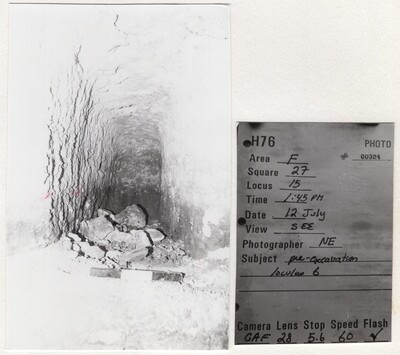 H76 PHOTO
Area F # 00324
Square 27
Locus 15
Time 1:45 PM
Date 12 July
View SEE
Photographer NE
Subject pre-excavation
loculus 6
Camera Lens Stop Speed Flash
CAF 28 5.6 60